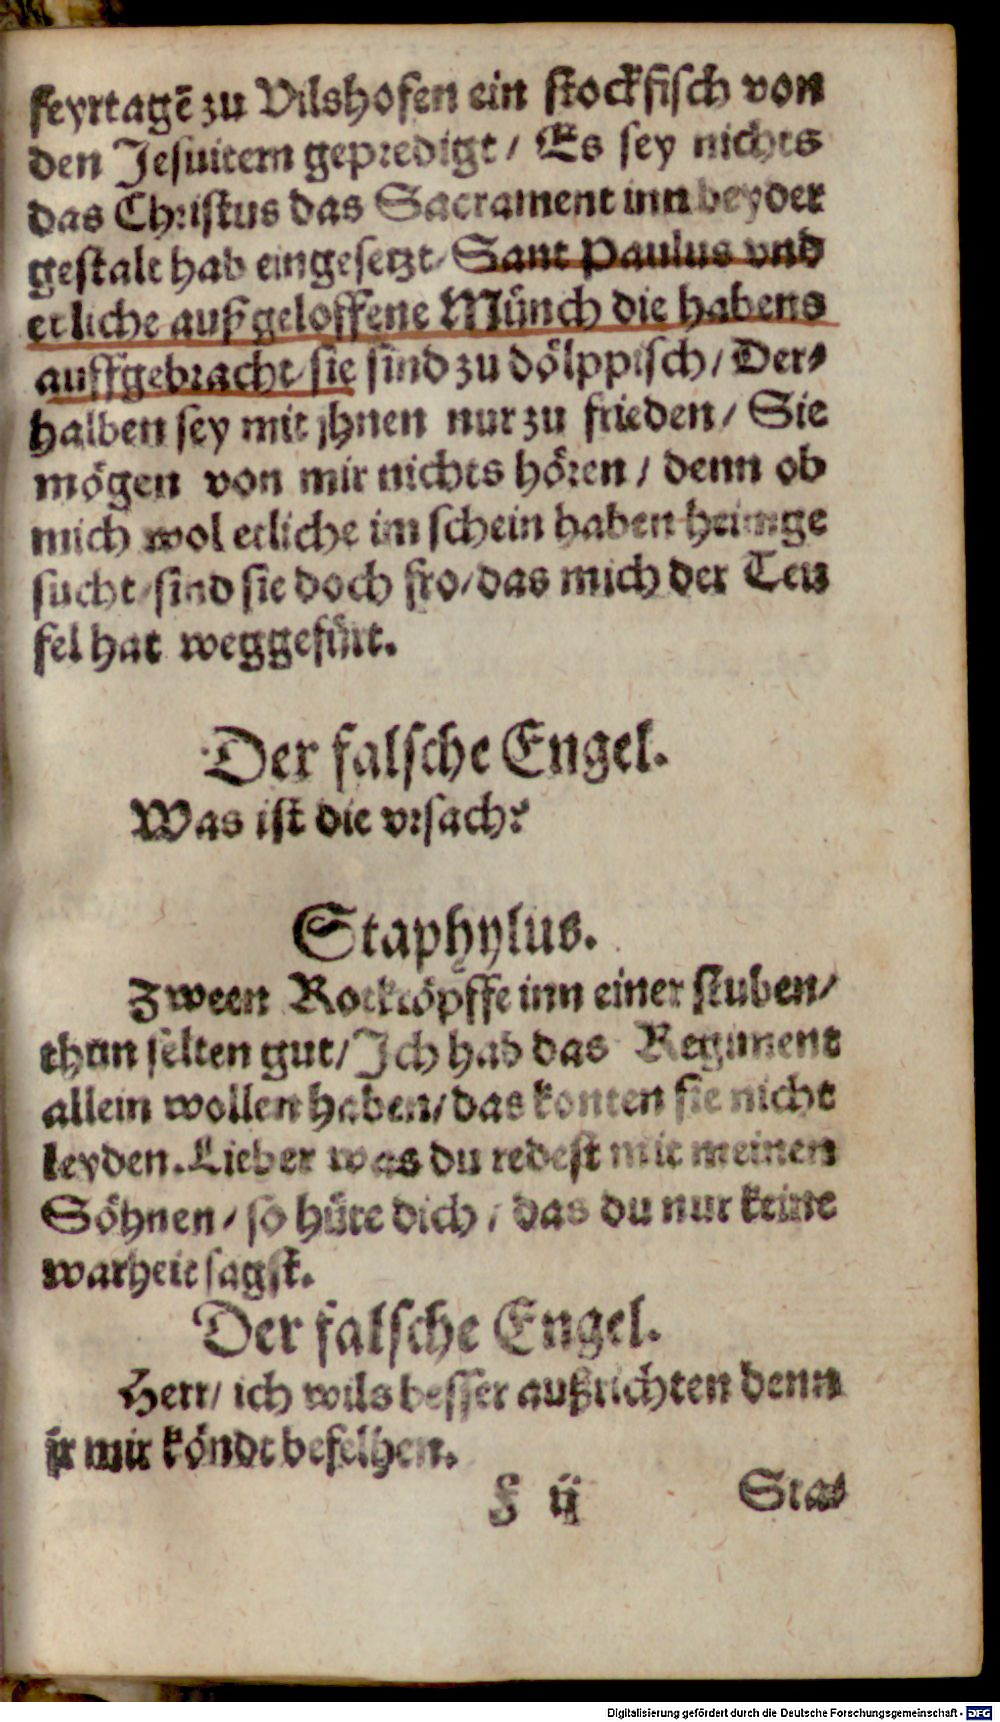 feyrtagẽ zu Vilshofen ein stockfisch von
den Jesuitern gepredigt / Es sey nichts
das Christus das Sacrament inn beyder
gestalt hab eingesetzt / Sant Paulus vnd
etliche außgeloffene Münch die habens
auffgebracht / sie sind zu dölppisch / Der⸗
halben sey mit jhnen nur zu frieden / Sie
mögen von mir nichts hören / denn ob
mich wol etliche im schein haben heimge
sucht / sind sie doch fro / das mich der Teu
fel hat weggefürt.
Der falsche Engel.
Was ist die vrsach?
Staphylus.
Zween Rotköpffe inn einer stuben /
thun selten gut / Ich hab das Regiment
allein wollen haben / das konten sie nicht
leyden. Lieber was du redest mit meinen
Söhnen / so hüte dich / das du nur keine
warheit sagst.
Der falsche Engel.
Herr / ich wils besser außrichten denn
ir mir köndt befelhen.
F ij Sta⸗
Digitalisierung gefördert durch die Deutsche Forschungsgemeinschaft - DFG